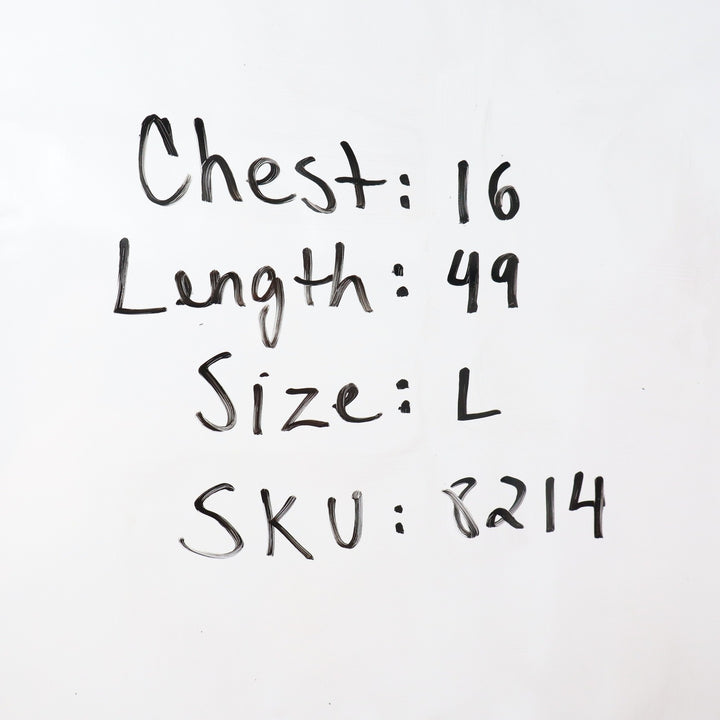 Chest: 16
Length: 49
Size: L
SKU: 8214